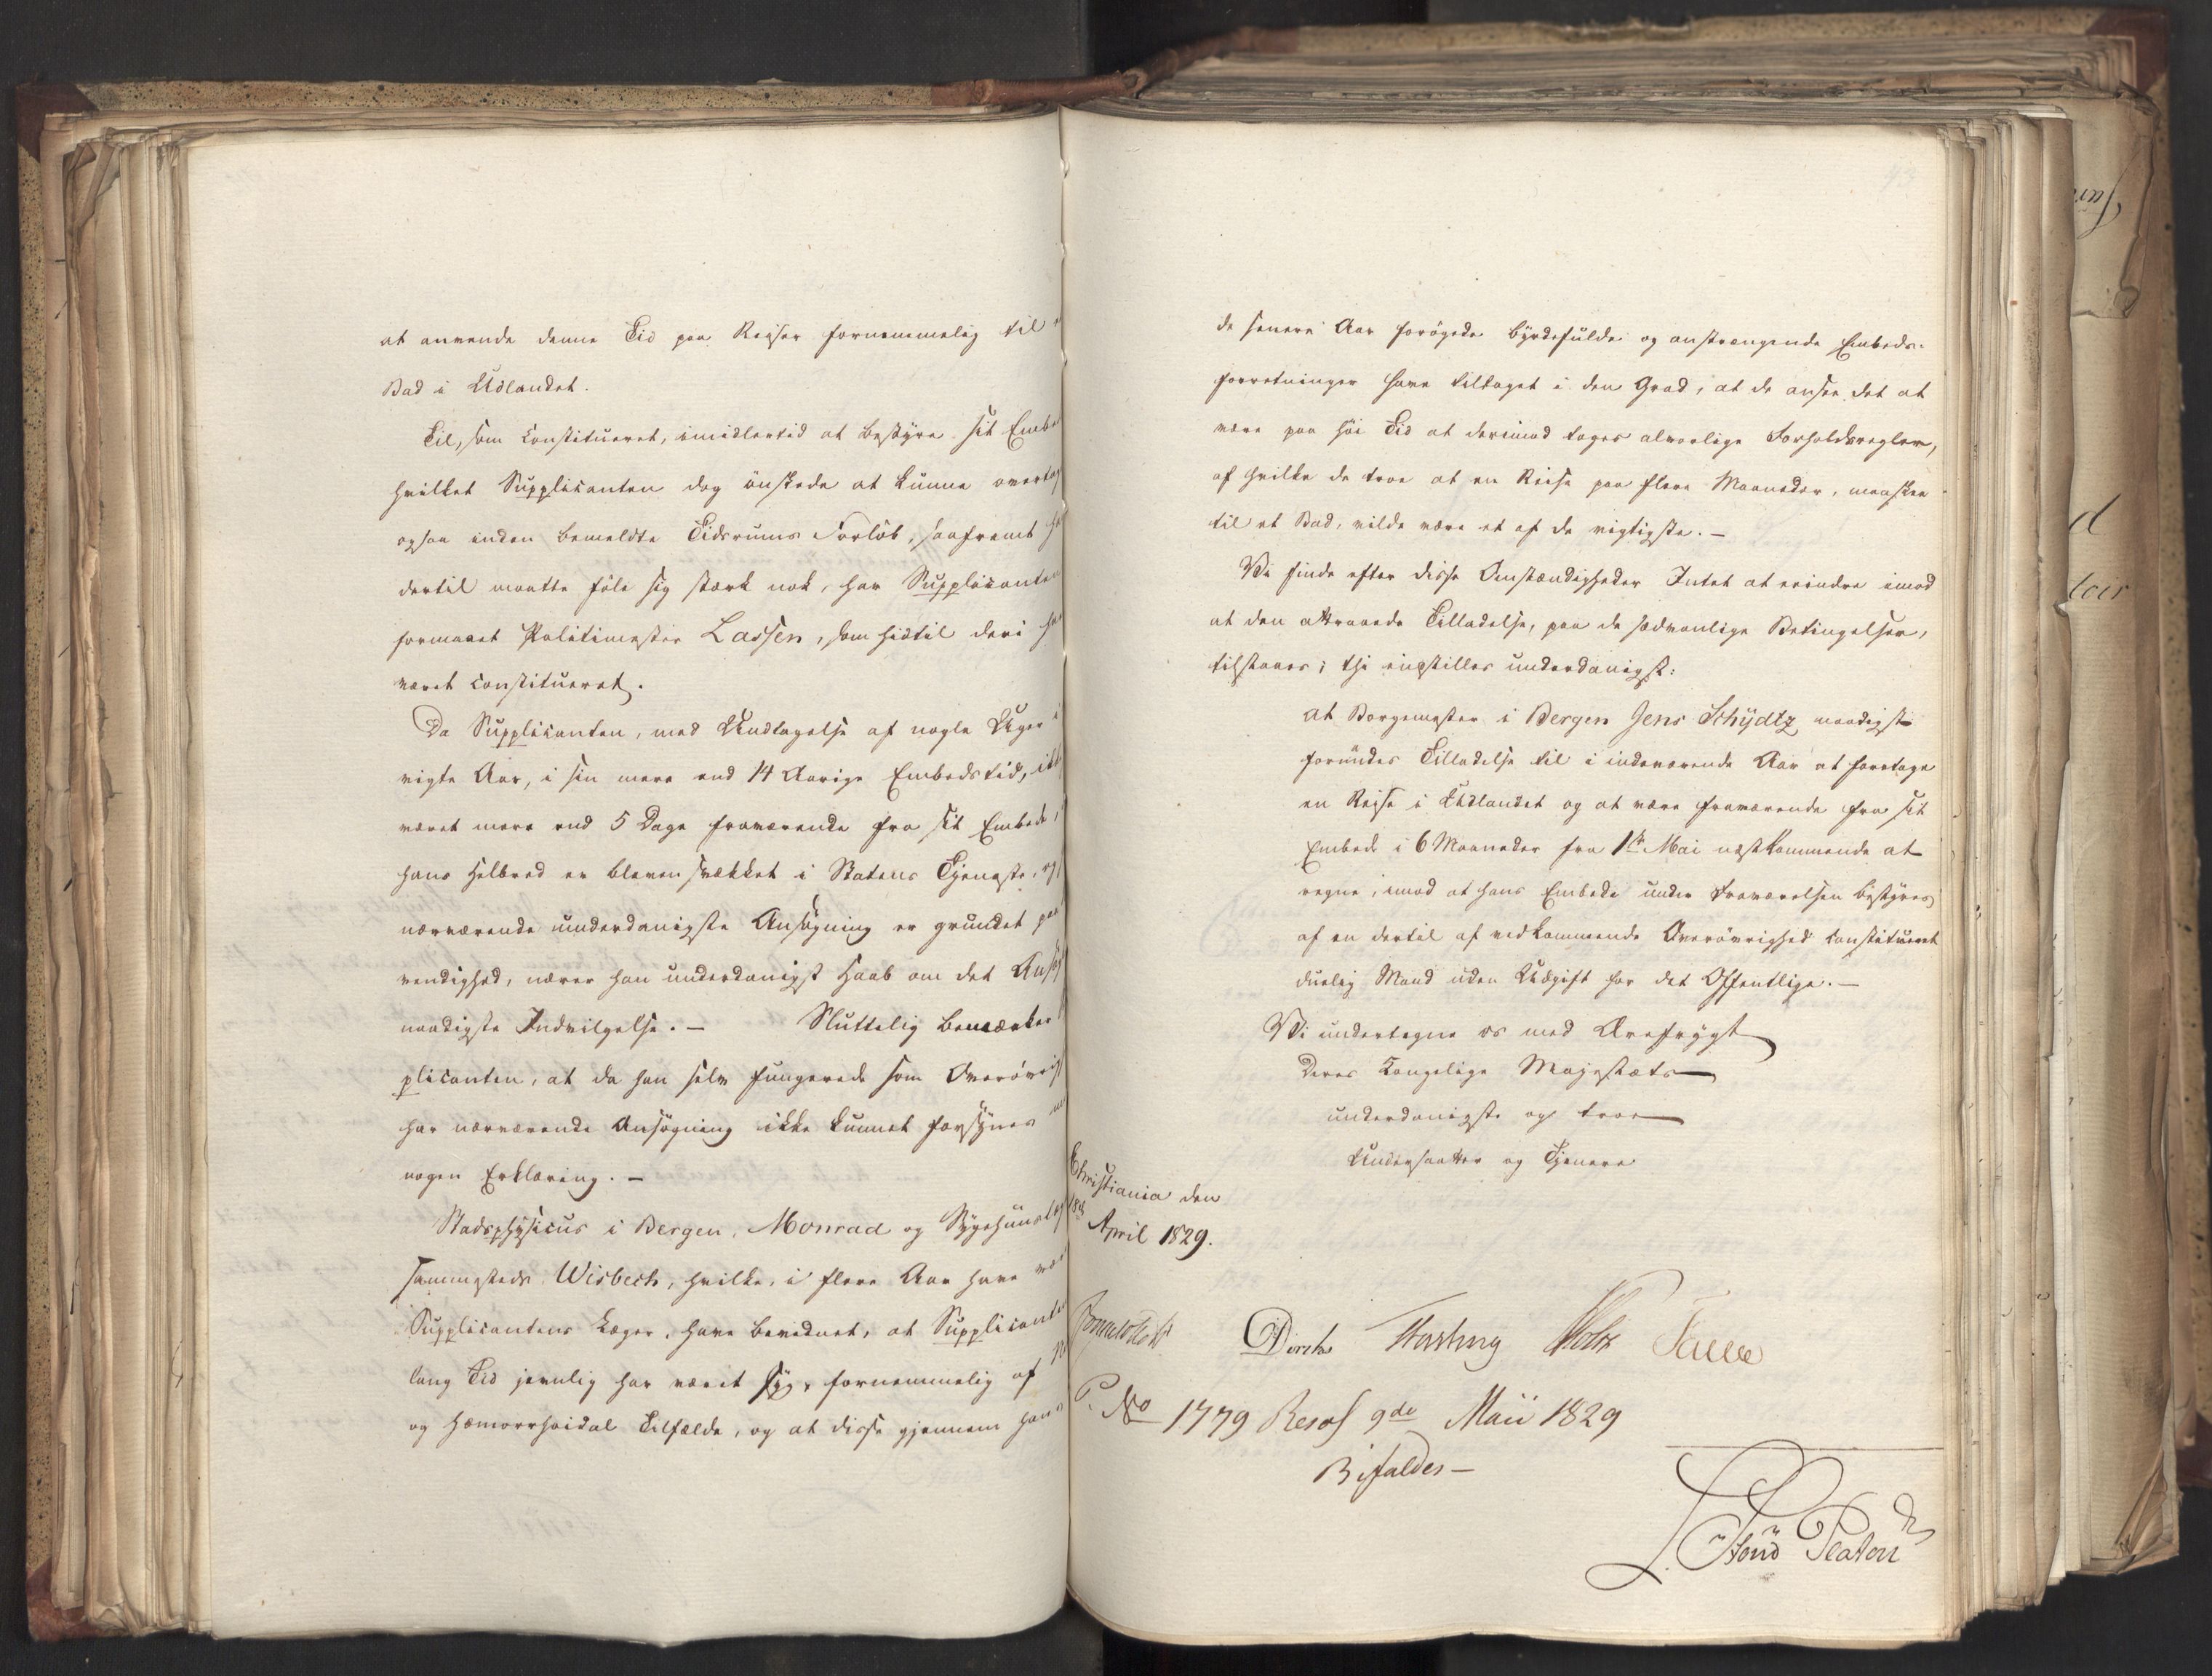 at anvende denne Tid paa Reiser fornemmelig til
Bad i Udlandet.
Til, som constitueret, imidlertid at bestyre sit Embe
hvilket Supplicanten dog önskede at kunne overtag
ogsaa inden bemeldte Tidsrums Forløb, saafremt h
dertil maatte føle sig stærk nok, har Supplicanten
formaaet Politimester Lassen, som hidtil deri ha
været constitueret.
Da Supplicanten, med Undtagelse af nogle Uger i
vigte Aar, i sin mere end 14 Aarige Embedstid, ikk
været mere end 5 Dage fraværende fra sit Embede,
hans Helbred er bleven svækket i Statens Tjeneste, og
nærværende underdanigste Ansøgning er grundet paa
vendighed, nærer han underdanigst Haab om det Ansøg
naadigste Indvilgelse. — Sluttelig bemærker
plicanten, at da han selv fungerede som Overøvrigh
har nærværende Ansøgning ikke kunnet forsynes
nogen Erklæring. —
Stadsphysicus i Bergen, Monrad og Sygehuuslæg
sammesteds Wisbech, hvilke, i flere Aar have væ
Supplicantens Læger, have bevidnet, at Supplicanten
lang Tid jevnlig har været syg, fornemmelig af
og hæmorrhoidal Tilfælde, og at disse gjennem hans
de senere Aar forøgede byrdefulde og anstrængende Embeds-
forretninger have tiltaget i den Grad, at de ansee det at
være paa høi Tid at derimod tages alvorlige Forholdsregler,
af hvilke de troe at en Reise paa flere Maaneder, maaskee
til et Bad, vilde være et af de vigtigste. —
Vi finde efter disse Omstændigheder Intet at erindre imod
at den attraaede Tilladelse, paa de sædvanlige Betingelser,
tilstaaes; thi indstilles underdanigst:
At Borgemester i Bergen Jens Schydtz naadigst
forundes Tilladelse til i indeværende Aar at foretage
en Reise i Udlandet og at være fraværende fra sit
Embede i 6 Maaneder fra 1ste Mai næstkommende at
regne, imod at hans Embede under Fraværelsen bestyres
af en dertil af vedkommende Overøvrighed constitueret
duelig Mand uden Udgift for det Offentlige. —
Vi undertegne os med Ærefrygt
Deres Kongelige Majestæts
underdanigste og troe
Undersaatter og Tjenere
Christiania den
April 1829.
Diriks Fasting Holst
P. No 1779 Resol 9de Maii 1829
Bifaldes —